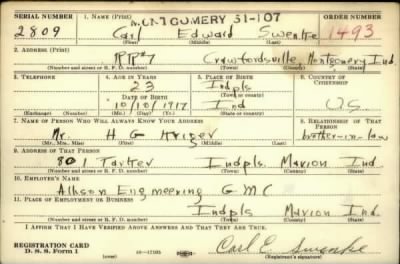 MONTGOMERY 31-107
SERIAL NUMBER 1. NAME (Print) ORDER NUMBER
2809 Carl Edward Swenke 1493
(First) (Middle) (Last)
2. ADDRESS (Print)
RR#7 Crawfordsville, Montgomery Ind.
(Number and street or R. F. D. number) (Town) (County) (State)
3. TELEPHONE 4. AGE IN YEARS 5. PLACE OF BIRTH 6. COUNTRY OF CITIZENSHIP
23 Indpls
DATE OF BIRTH (Town or county)
10/10/1917 Ind U.S.
(Exchange) (Number) (Mo.) (Day) (Yr.) (State or country)
7. NAME OF PERSON WHO WILL ALWAYS KNOW YOUR ADDRESS 8. RELATIONSHIP OF THAT PERSON
Mr. H G Kriger brother-in-law
(Mr., Mrs., Miss) (First) (Middle) (Last)
9. ADDRESS OF THAT PERSON
801 Parker Indpls Marion Ind
(Number and street or R. F. D. number) (Town) (County) (State)
10. EMPLOYER'S NAME
Allison Engineering GMC
11. PLACE OF EMPLOYMENT OR BUSINESS
Indpls Marion Ind.
(Number and street or R. F. D. number) (Town) (County) (State)
I AFFIRM THAT I HAVE VERIFIED ABOVE ANSWERS AND THAT THEY ARE TRUE.
REGISTRATION CARD
D. S. S. Form 1 (over) 16-17105 Carl E. Swenke
(Registrant's signature)